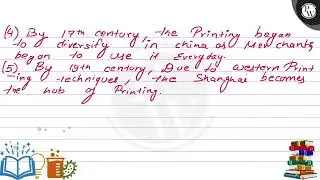 (4) By 17th century, the Printing began
to diversify in china as Merchants
began to use it Everyday.
(5) By 19th century, Due to western Print
-ing techniques, the Shanghai becomes
the hub of Printing.